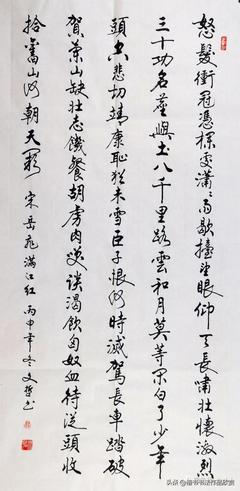 怒髮衝冠憑欄處瀟〻雨歇擡望眼仰天長嘯壯懷激烈
三十功名塵與土八千里路雲和月莫等閒白了少年
頭空悲切靖康恥猶未雪臣子恨何時滅駕長車踏破
賀蘭山缺壯志饑餐胡虜肉笑談渴飲匈奴血待從頭收
拾舊山河朝天闕 宋岳飛滿江紅 丙申年冬文哲書